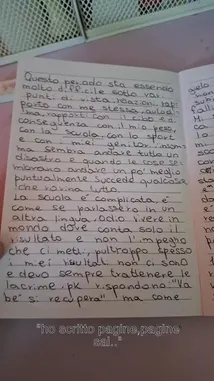 Questo periodo sta essendo
molto difficile sotto vari
punti di vista, relazioni, rap
porto con me stessa, autos
ma, rapporti con il cibo e d
conseguenza con il mio peso,
con la scuola, con lo sport
e con i miei genitori, insom
ma sembra andare tutto un
disastro e quando le cose se
mbrano andare un po' meglio
puntualmente succede qualcosa
che rovina tutto.
La scuola é complicata, é
come se parlassero in un
altra lingua. Odio vivere in
mondo dove conta solo il
risultato e non l'impegno
che ci metti, pultroppo spesso
i miei risultati non ci sono
e devo sempre trattenere le
lacrime, pk rispondono "Va
be' si recupera" ma come
gelo
"ho scritto pagine,pagine
sai.."